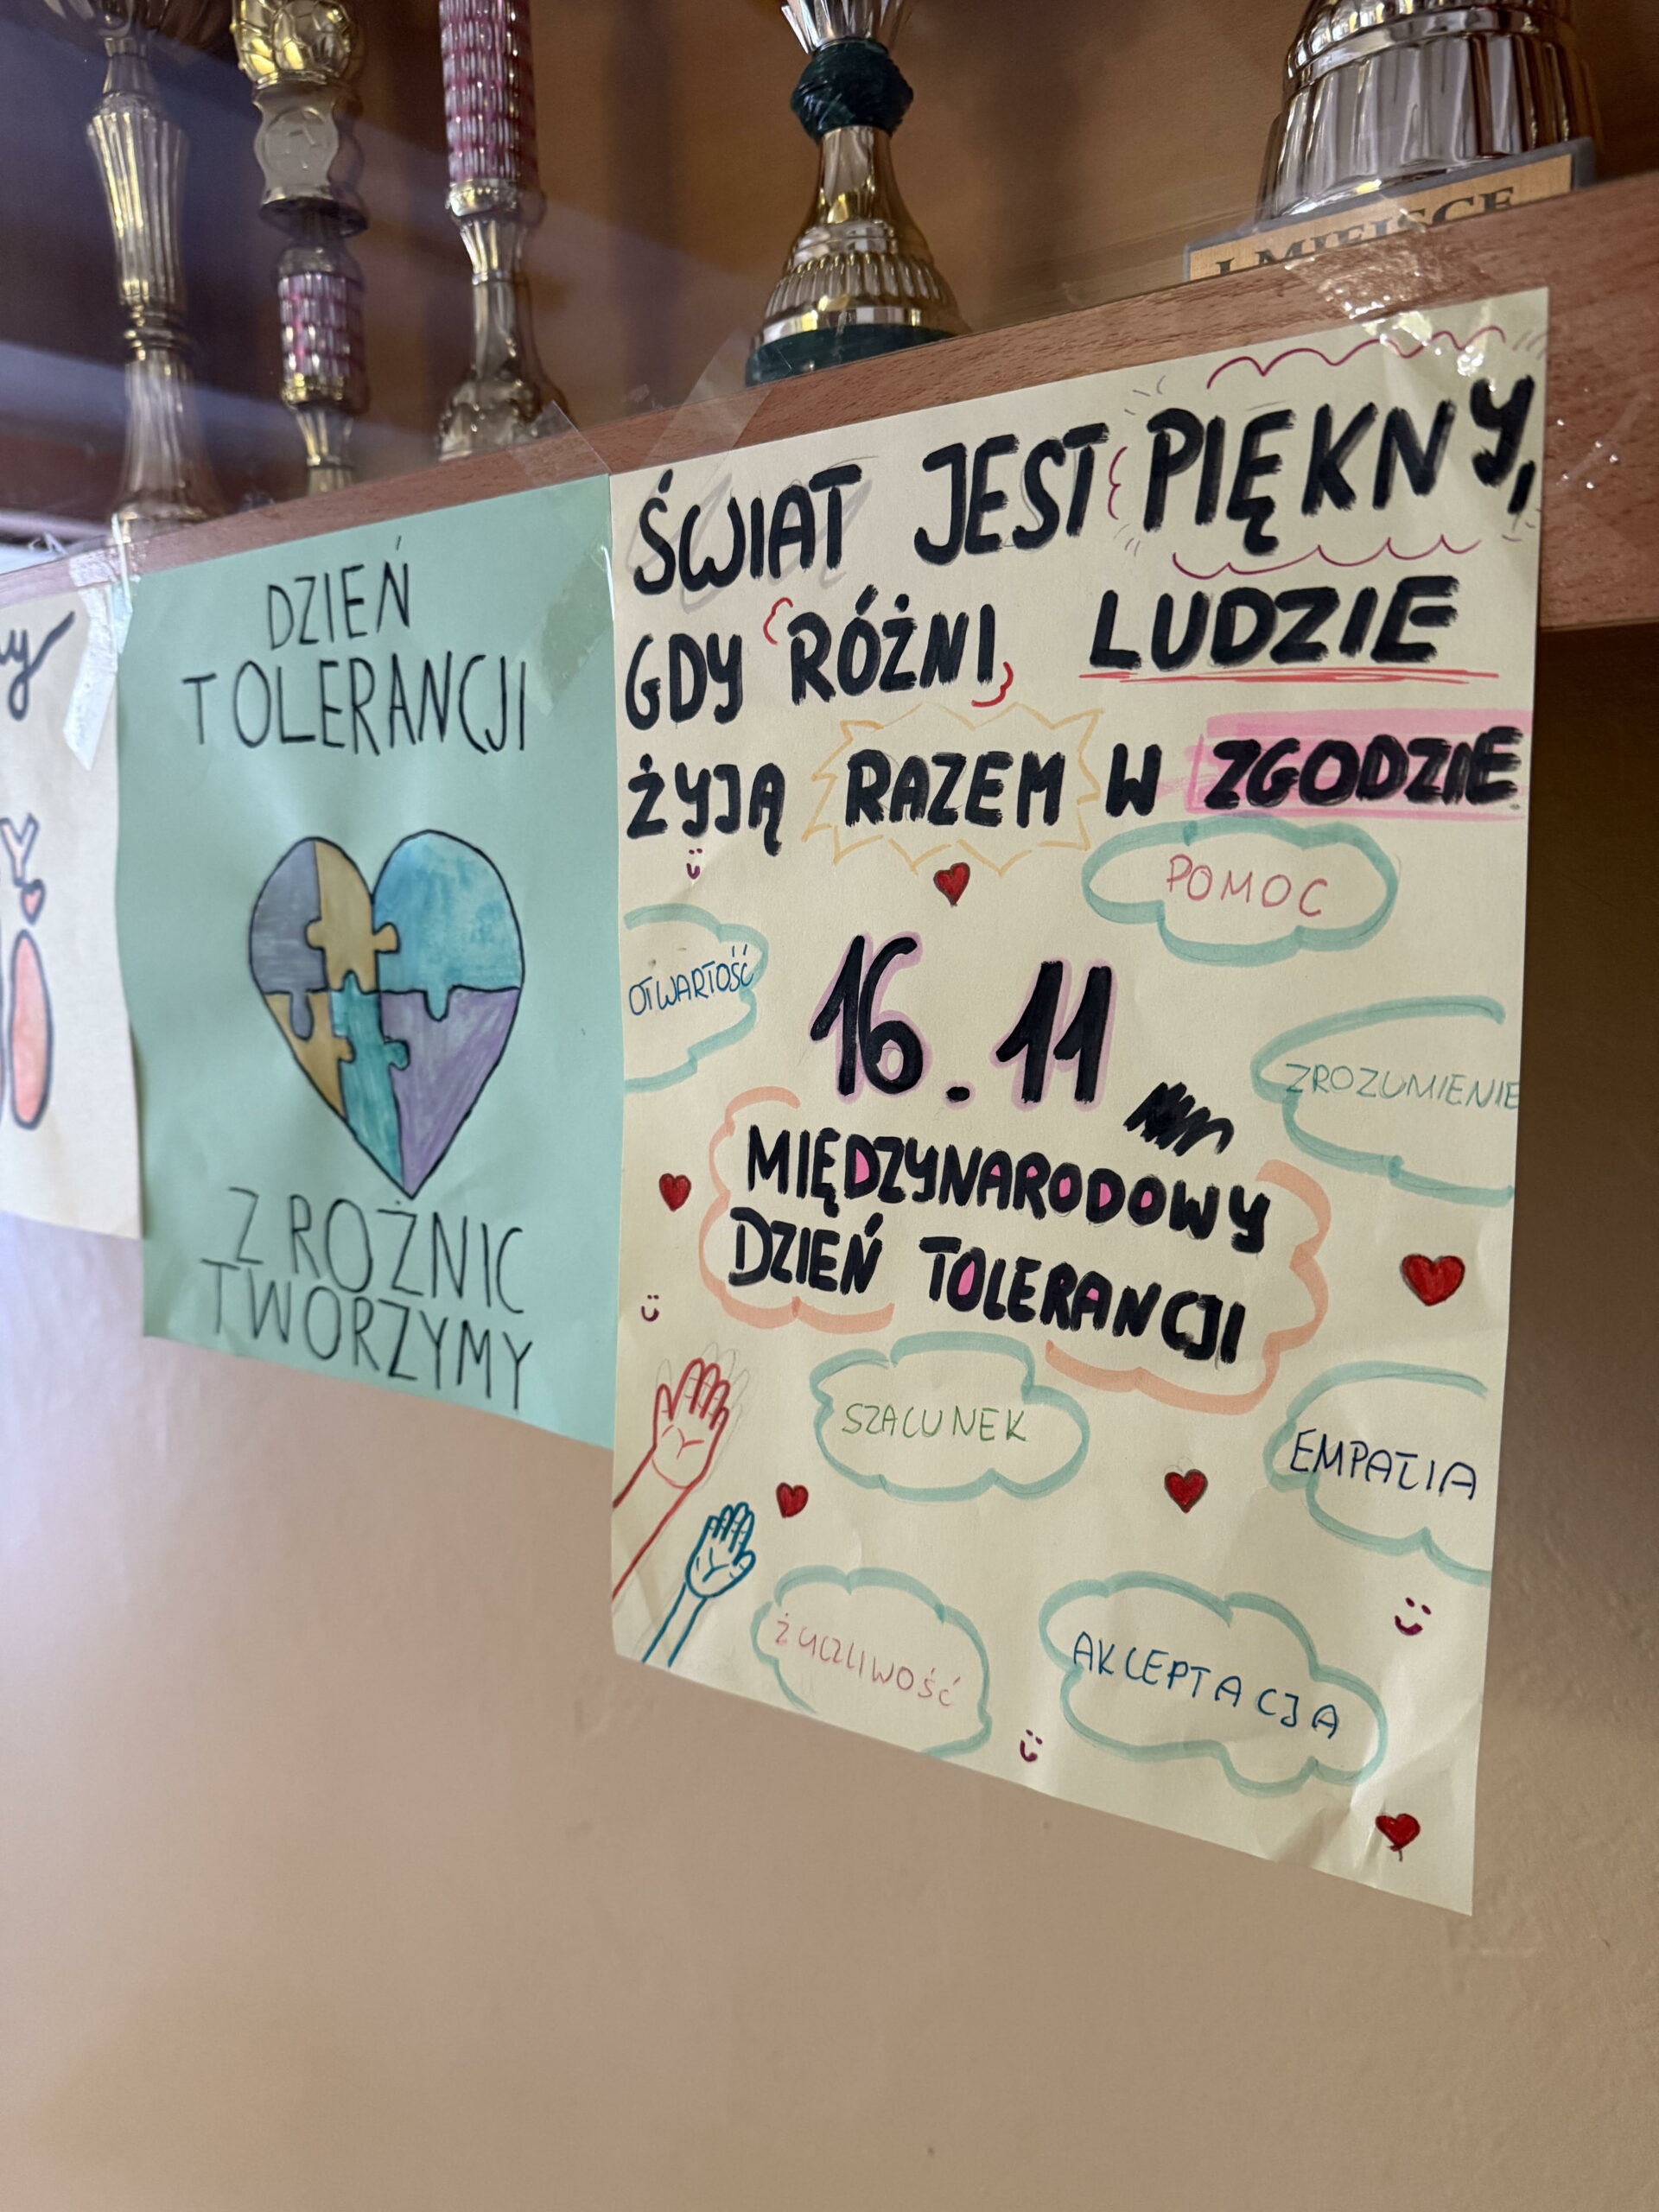 I MIEJSCE
DZIEŃ
TOLERANCJI
Z RÓŻNIC
TWORZYMY
ŚWIAT JEST PIĘKNY,
GDY RÓŻNI LUDZIE
ŻYJĄ RAZEM W ZGODZIE
POMOC
OTWARTOŚĆ
16.11
ZROZUMIENIE
MIĘDZYNARODOWY
DZIEŃ TOLERANCJI
SZACUNEK
EMPATIA
ŻYCZLIWOŚĆ
AKCEPTACJA